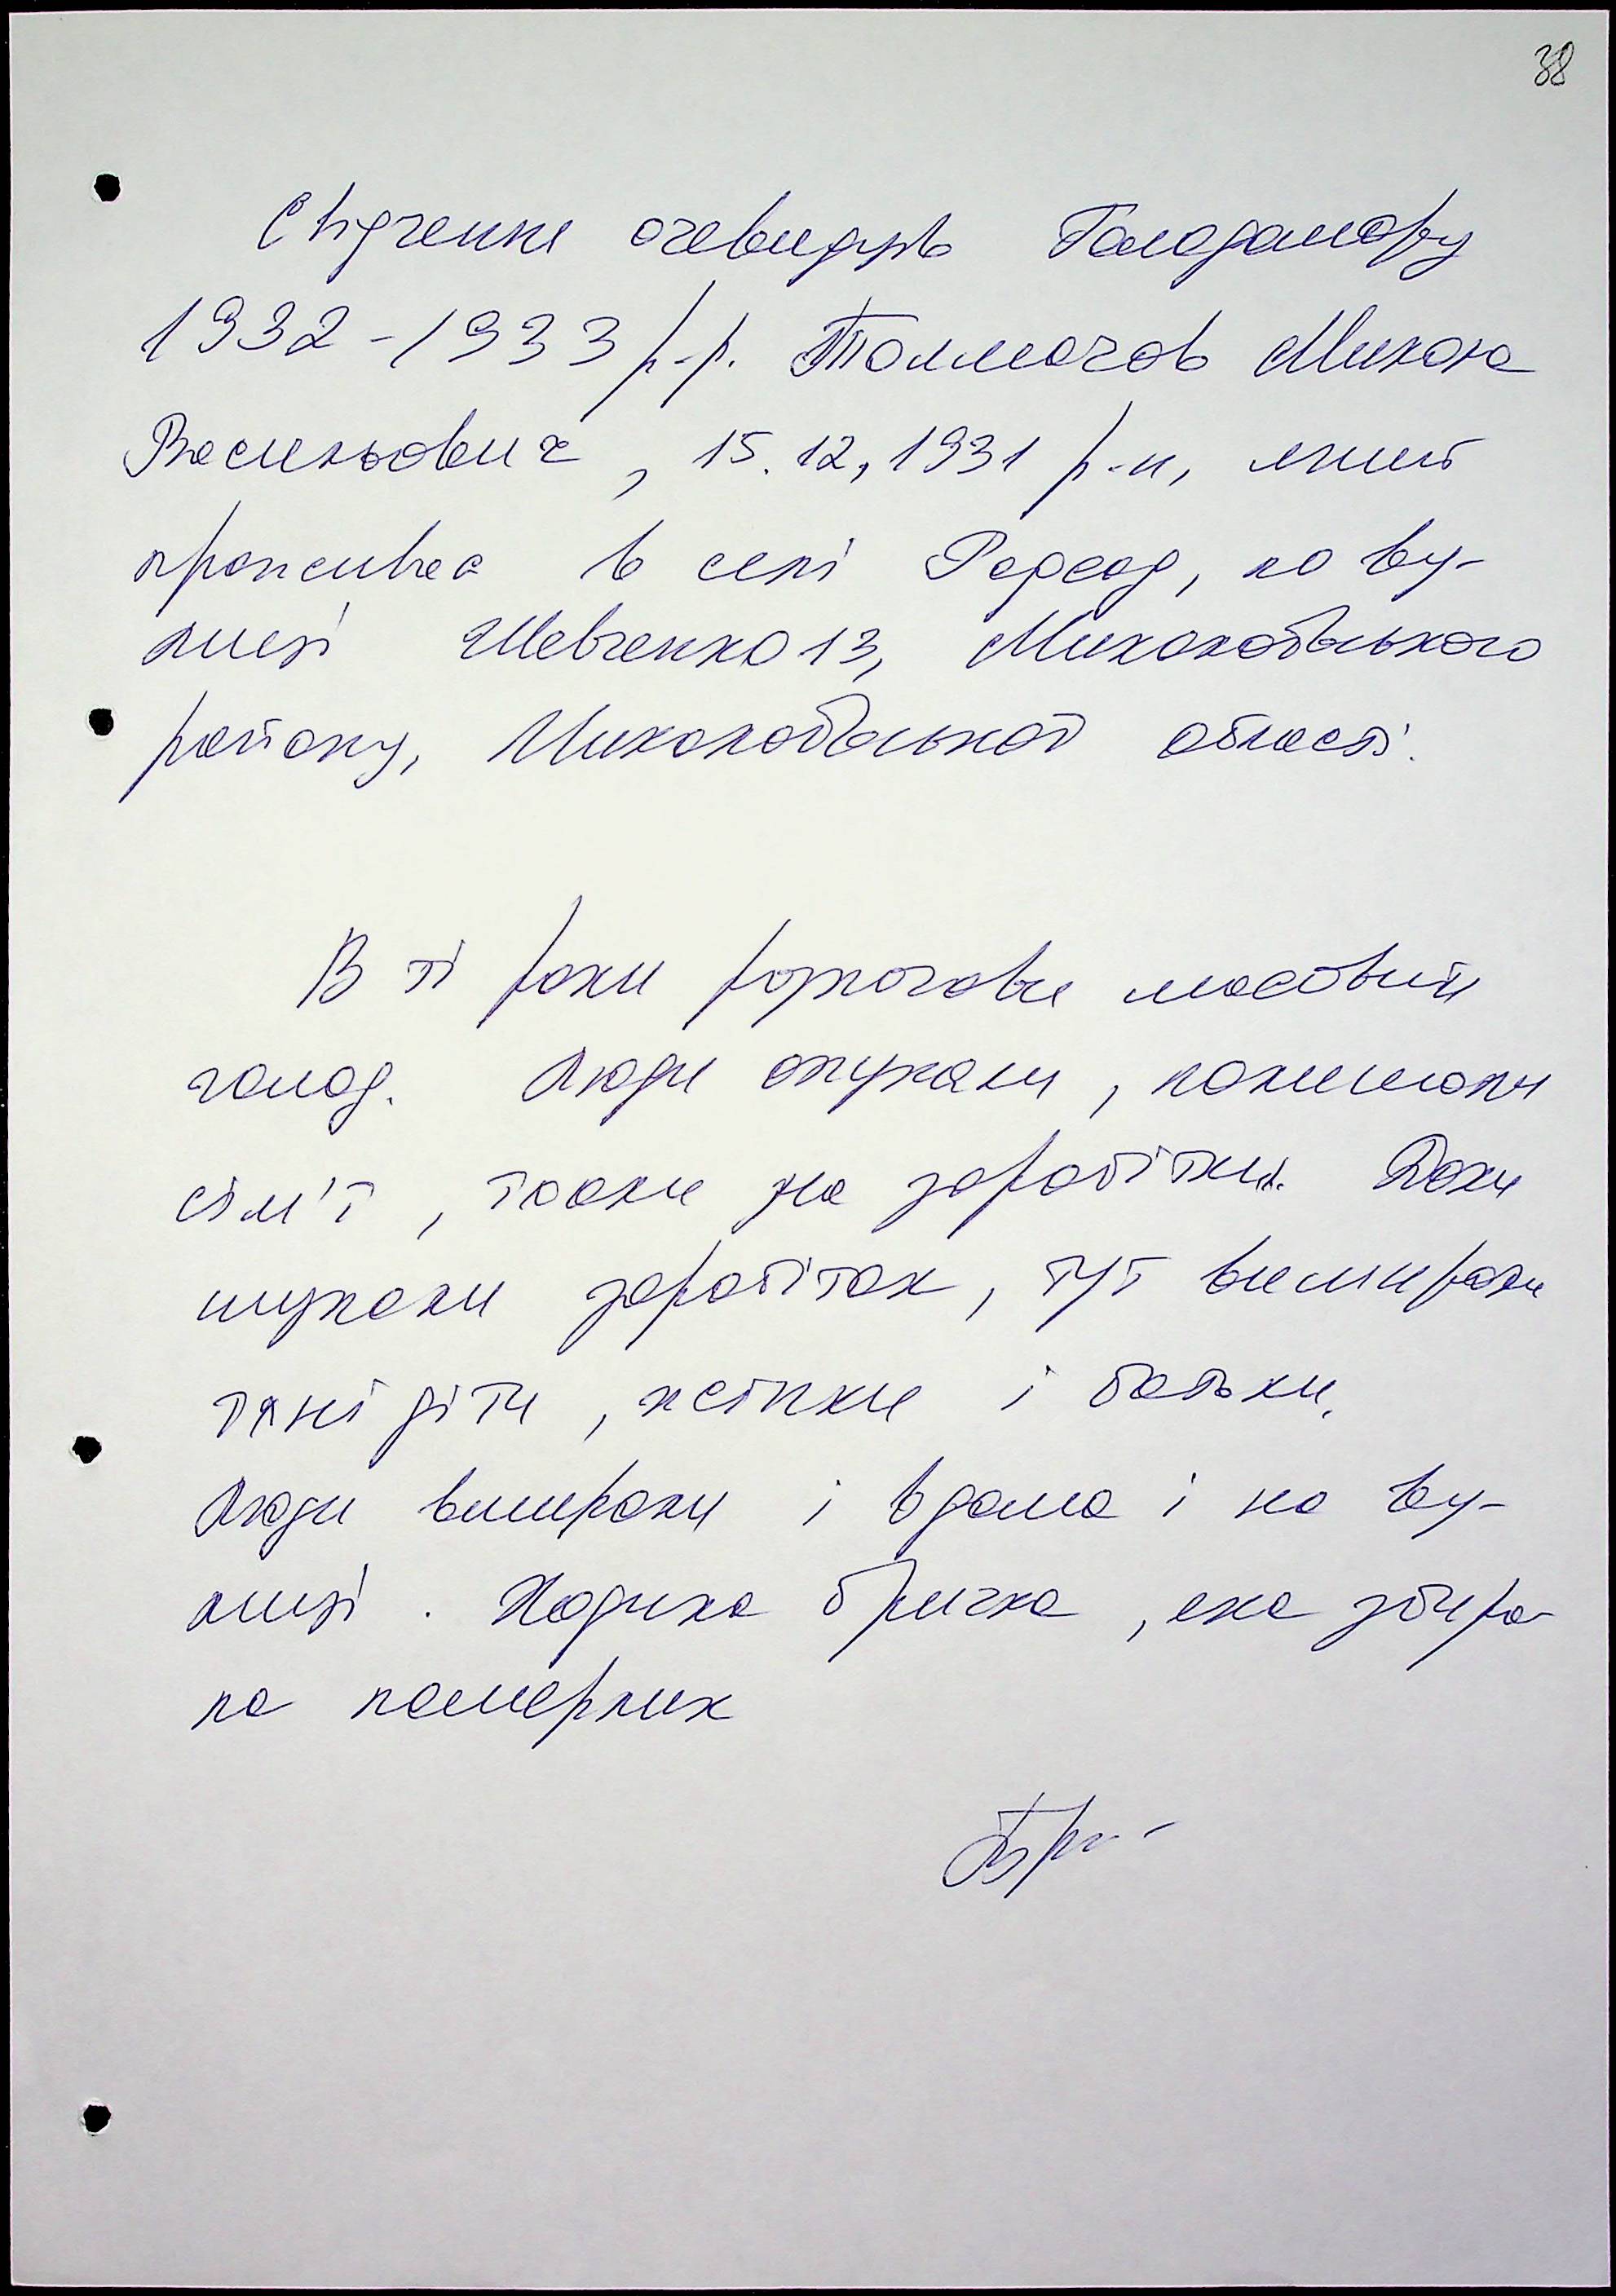 38
Свідчення очевидців Голодомору
1932-1933 р-р. Толмачов Микола
Васильович, 15.12.1931 р-н, який
проживає в селі Радсад, по ву-
лиці Шевченко 13, Миколаївського
району, Миколаївської області.
В ті роки розпочався масовий
голод. Люди опухали, покидали
сім'ї, їхали на заробітки. Доки
шукали заробіток, тут вимирали
їхні діти, жінки і батьки.
Люди вмирали і вдома і на ву-
лиці. Ходила бричка, яка збира-
ла померлих